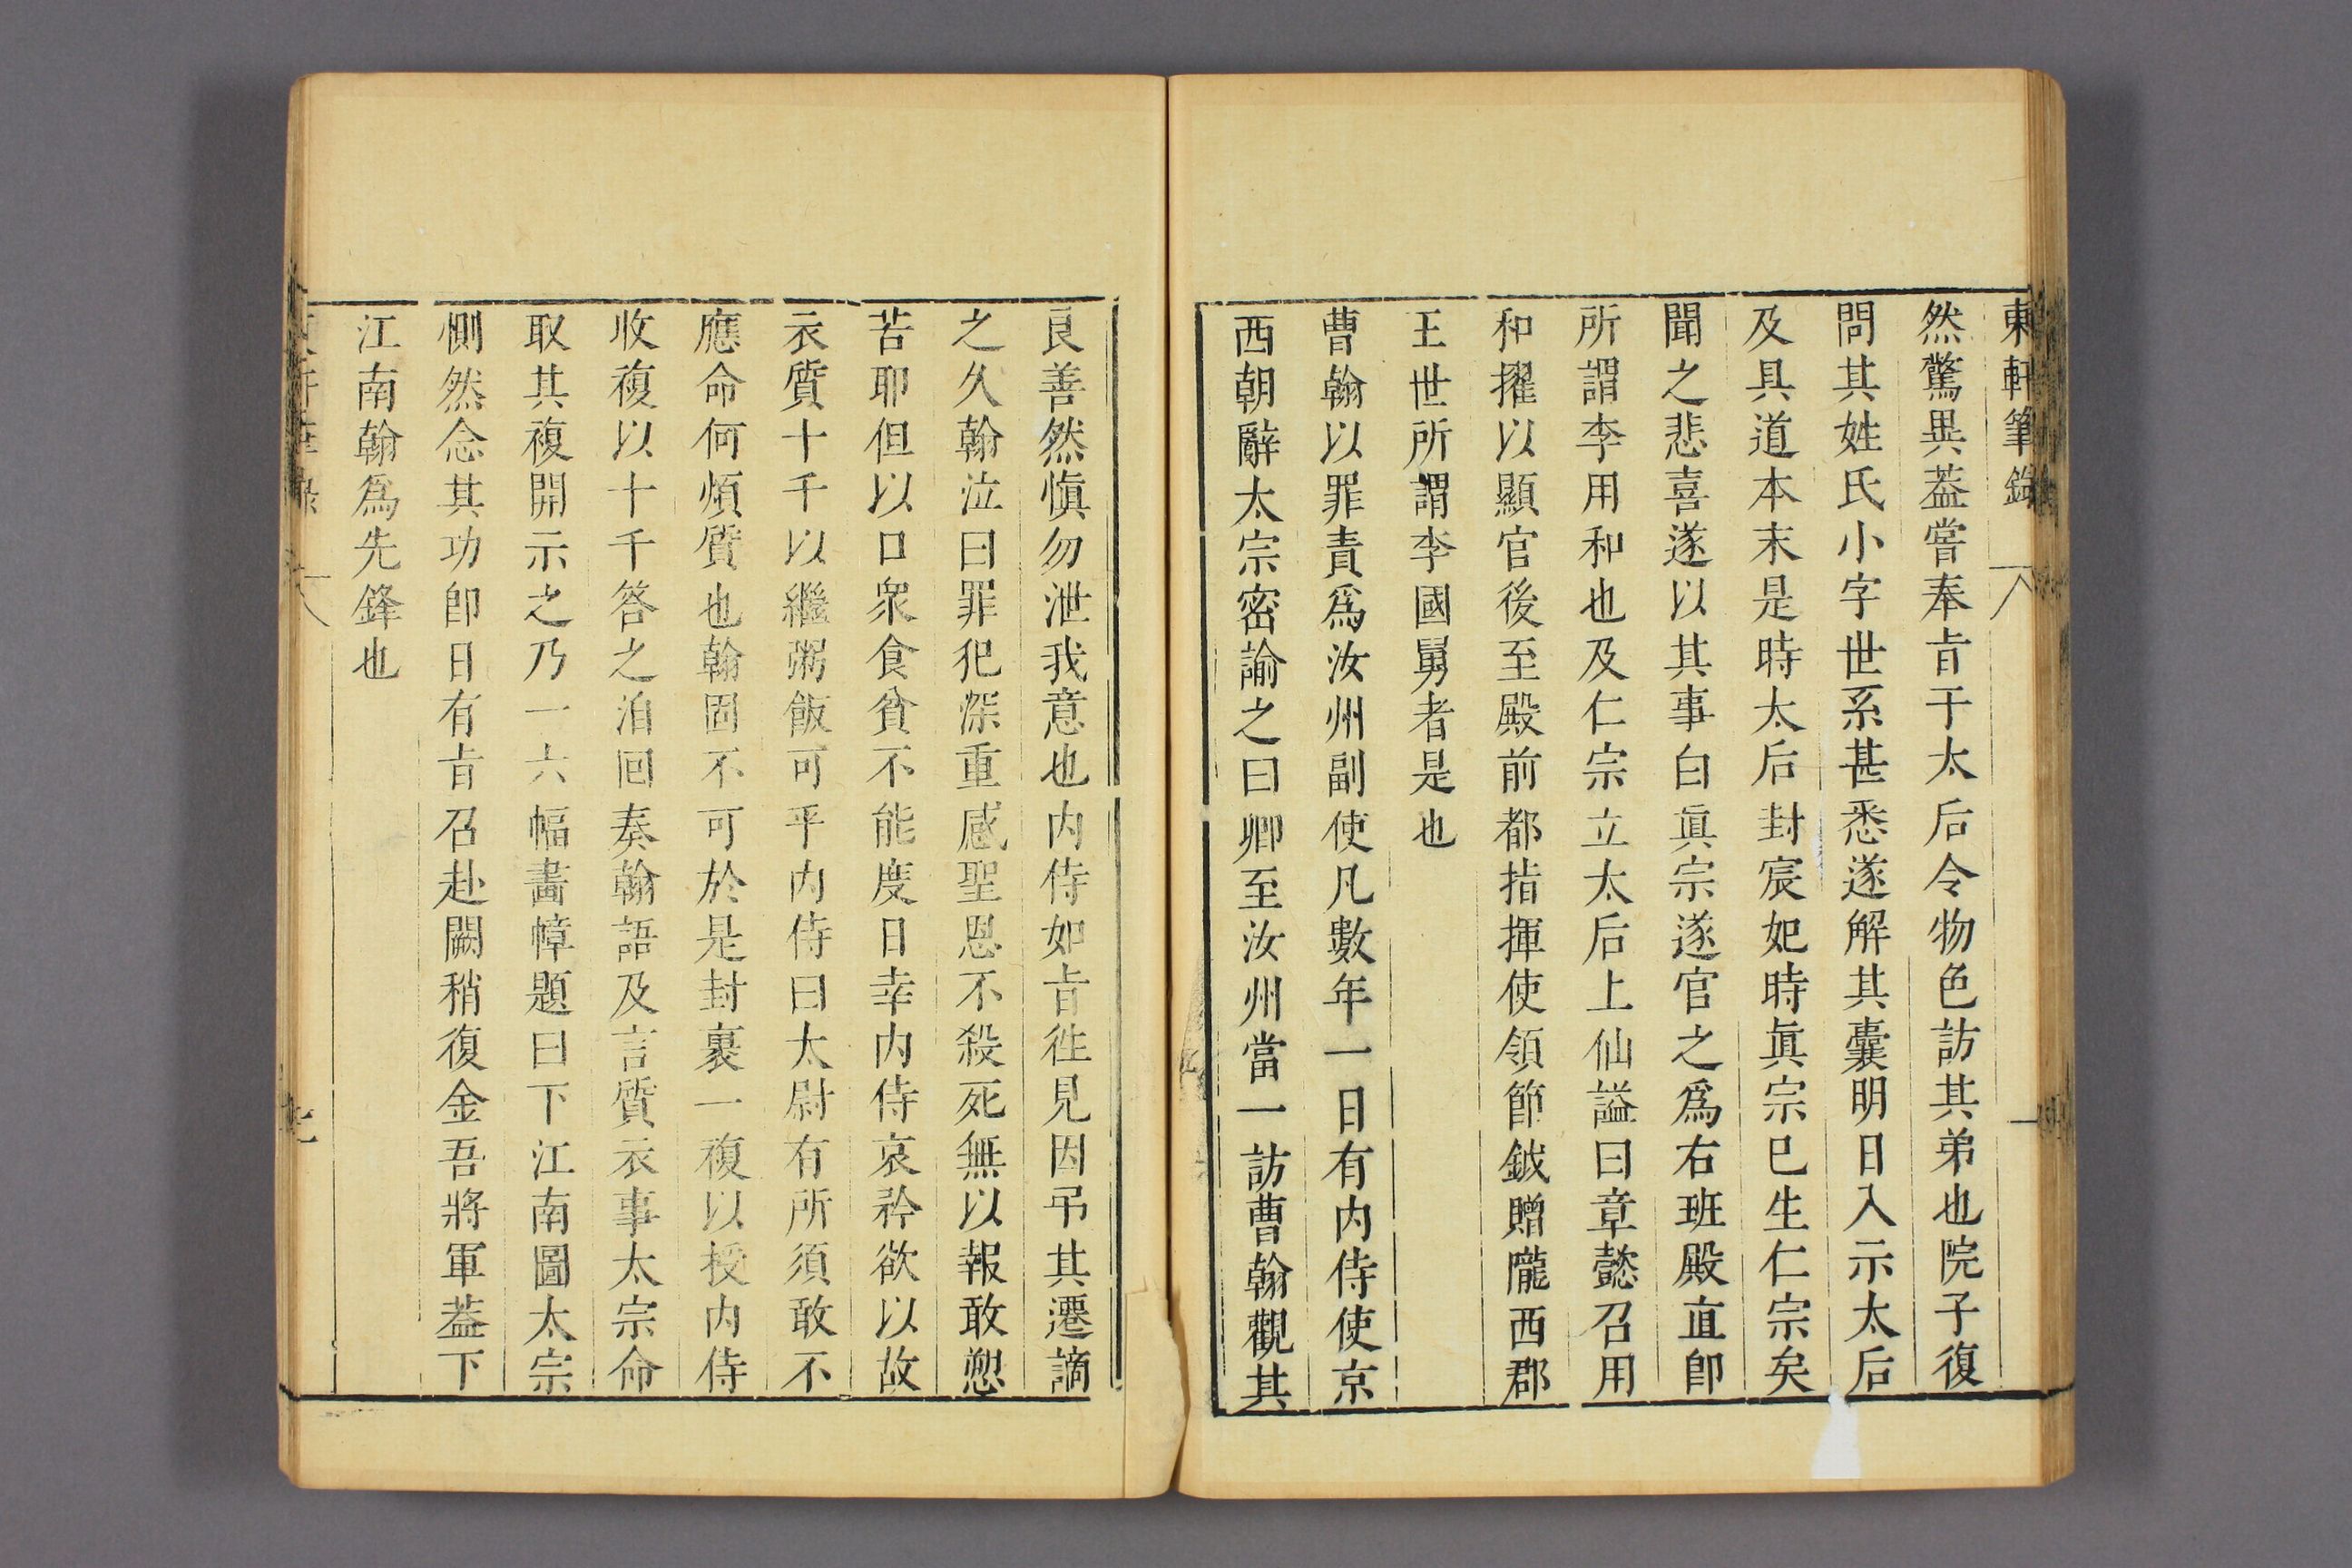 東軒筆錄
然驚異葢嘗奉旨于太后令物色訪其弟也院子復
問其姓氏小字世系甚悉遂解其囊明日入示太后
及具道本末是時太后封宸妃時眞宗已生仁宗矣
聞之悲喜遂以其事白眞宗遂官之爲右班殿直卽
所謂李用和也及仁宗立太后上仙謚曰章懿召用
和擢以顯官後至殿前都指揮使領節鉞贈隴西郡
王世所謂李國舅者是也
曹翰以罪責爲汝州副使凡數年一日有内侍使京
西朝辭太宗密諭之曰卿至汝州當一訪曹翰觀其
良善然愼勿泄我意也内侍如旨徃見因弔其遷謫
之久翰泣曰罪犯深重感聖恩不殺死無以報敢愬
苦耶但以口衆食貧不能度日幸内侍哀矜欲以故
衣質十千以繼粥飯可乎内侍曰太尉有所須敢不
應命何煩質也翰固不可於是封裹一複以授内侍
收複以十千答之洎回奏翰語及言質衣事太宗命
取其複開示之乃一六幅畵幛題曰下江南圖太宗
惻然念其功卽日有旨召赴闕稍復金吾將軍葢下
江南翰爲先鋒也